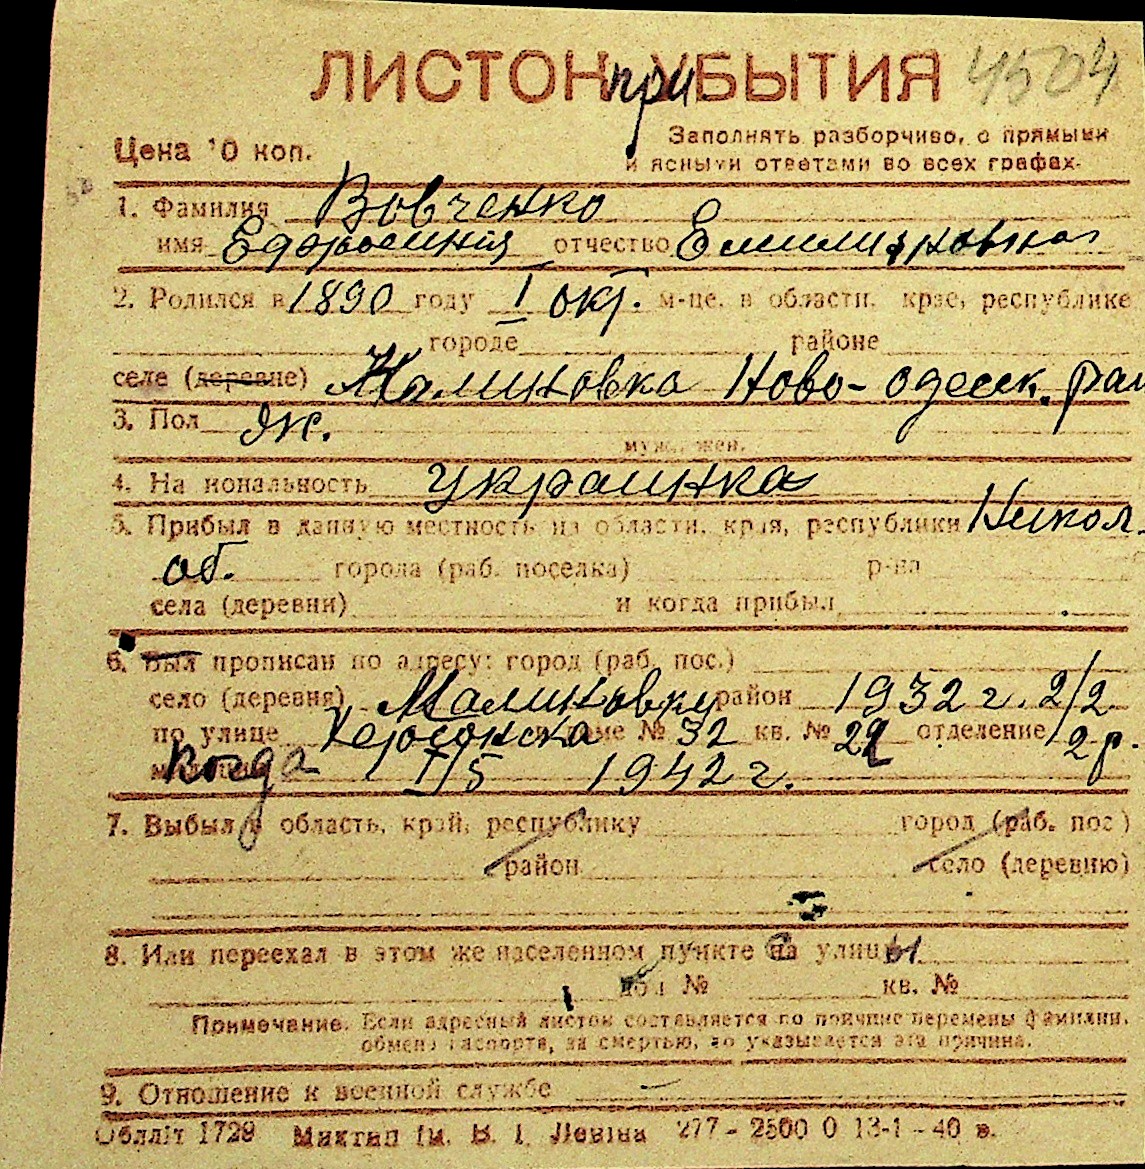 ЛИСТОК при УБЫТИЯ 4504
Цена 10 коп. Заполнять разборчиво, с прямыми
и ясными ответами во всех графах.
1. Фамилия Вовченко
имя Ефросиния отчество
2. Родился в 1890 году I окт. м-це, в области, крае, республике
городе районе
селе (деревне) Малиновка Ново-одесск. рай
3. Пол Ж.
муж., жен.
4. Национальность украинка
5. Прибыл в данную местность из области, края, республики Никол.
об. города (раб. поселка) р-на
села (деревни) и когда прибыл
6. Был прописан по адресу: город (раб. пос.)
село (деревня) Малиновку район 1932 г. 2/2
по улице Херсонска в доме № 32 кв. № 22 отделение 2 р.
когда 1/5 1942 г.
7. Выбыл в область, край, республику город (раб. пос.)
район село (деревню)
8. Или переехал в этом же населенном пункте с улицы
дом № кв. №
Примечание. Если адресный листок составляется по причине перемены фамилии,
обмена паспорта, за смертью, то указывается эта причина.
9. Отношение к военной службе —
Облліт 1729 Миктип ім. В. І. Леніна 277 - 2500 0 13-1 - 40 в.